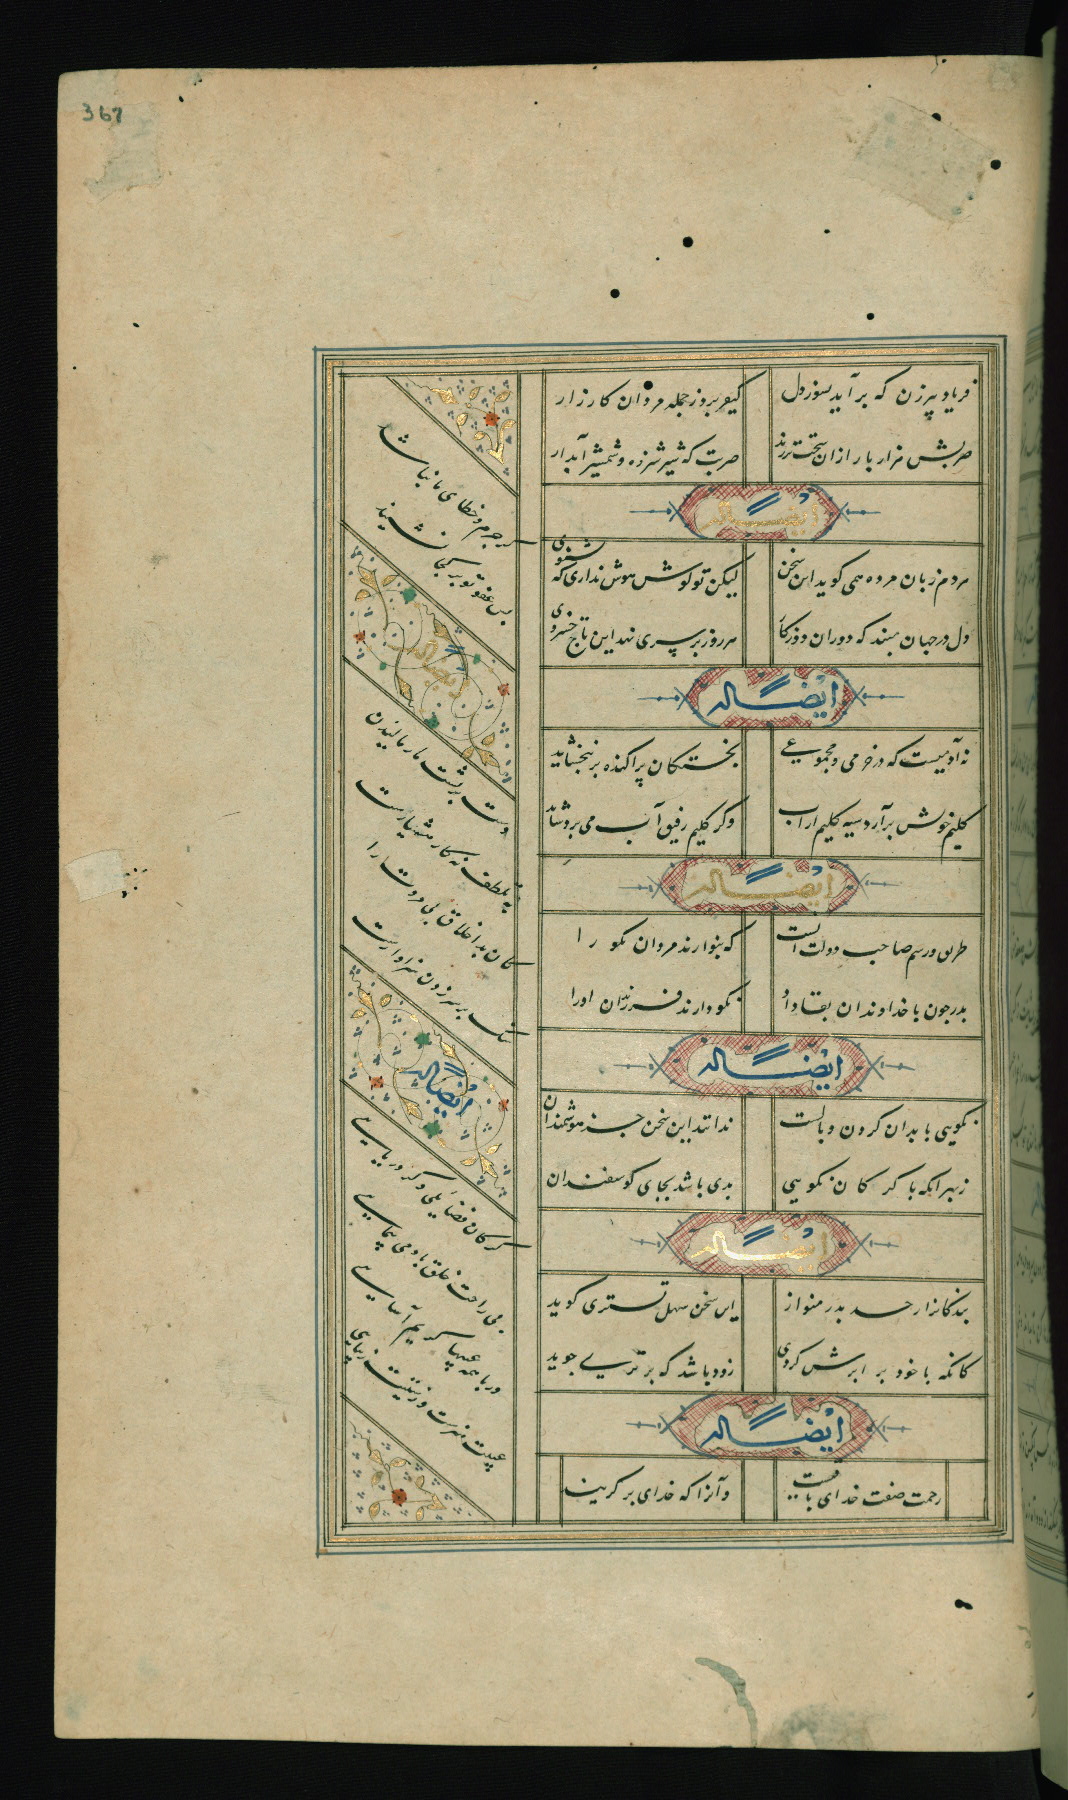 367
فریاد پیرزن که برآید بسوز دل
کیفر برد ز حمله مردان کارزار
ضربش هزار بار ازان سخت ترزند
ضربت که شیر شرزه و شمشیر آبدار
ایضاً له
مردم زبان مرده همی گوید این سخن
لیکن تو گوش هوش نداری که بشنوی
دل در جهان مبند که دوران روزگار
هر روز بر سری نهد این تاج خسروی
ایضاً له
نه آدمیست که در خرمی و مجموعی
بخستگان پراکنده بر نبخشاید
گلیم خویش برآرد سیه گلیم از آب
وگر گلیم رفیق آب می برد شاید
ایضاً له
طریق و رسم صاحب دولت آنست
که بنوازند مردان نکو را
بدر چون با خداوندان بقا داد
نکو دارند فرزندان او را
ایضاً له
نکویی با بدان کردن وبالست
ندانند این سخن جز هوشمندان
زبهر انکه با گرگان نکویی
بدی باشد بجای گوسفندان
ایضاً له
بندگانرا ز حد بدر منواز
این سخن سهل تستری گوید
کانکه با خود برابرش کردی
زود باشد که برتری جوید
ایضاً له
رحمت صفت خدای باقیست
وآنرا که خدای برگزیند
گر جرم و خطای ما نباشد
پس عفو تو بر کجا نشیند
ایضاً له
دست بر پشت مار مالیدن
به تلطف نه کار هشیارست
کان بد اخلاق بی مروت را
سنگ بر سر زدن سزاوارست
ایضاً له
گر کان فضایلی وگر دریایی
بی راحت خلق باد می پیمایی
ور با همه عیبها کریم آسایی
عیبت هنرست و زشتیت زیبایی